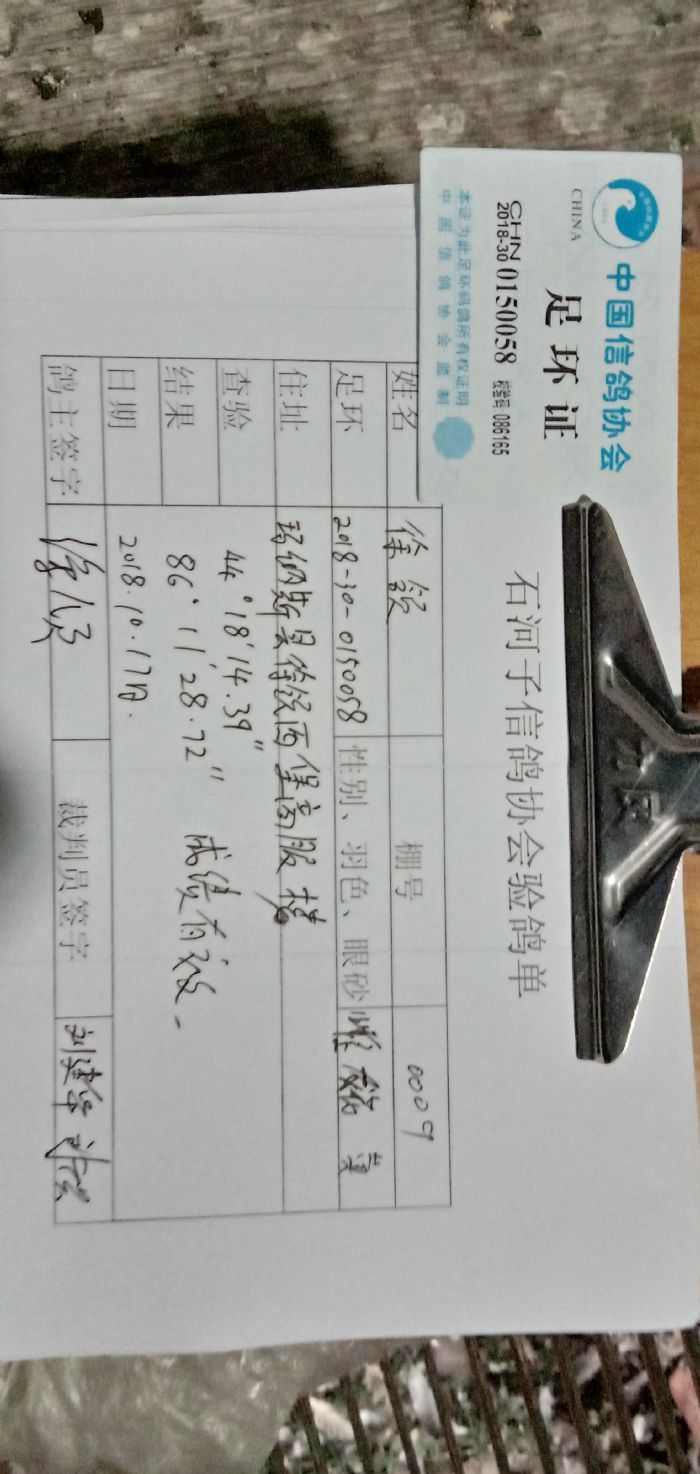 中国信鸽协会
CHINA
足环证
CHN
2018-30 0150058 校验码 086165
本证为此足环码鸽所有权证明
中国信鸽协会监制
石河子信鸽协会验鸽单
姓名 徐 棚号 0009
足环 2018-30-0150058 性别、羽色、眼砂 雌 黄
住址 玛纳斯县 西堡高服楼
查验 44°18′14.39″
结果 86°11′28.72″ 成绩有效
日期 2018.10.17日.
鸽主签字 裁判员签字